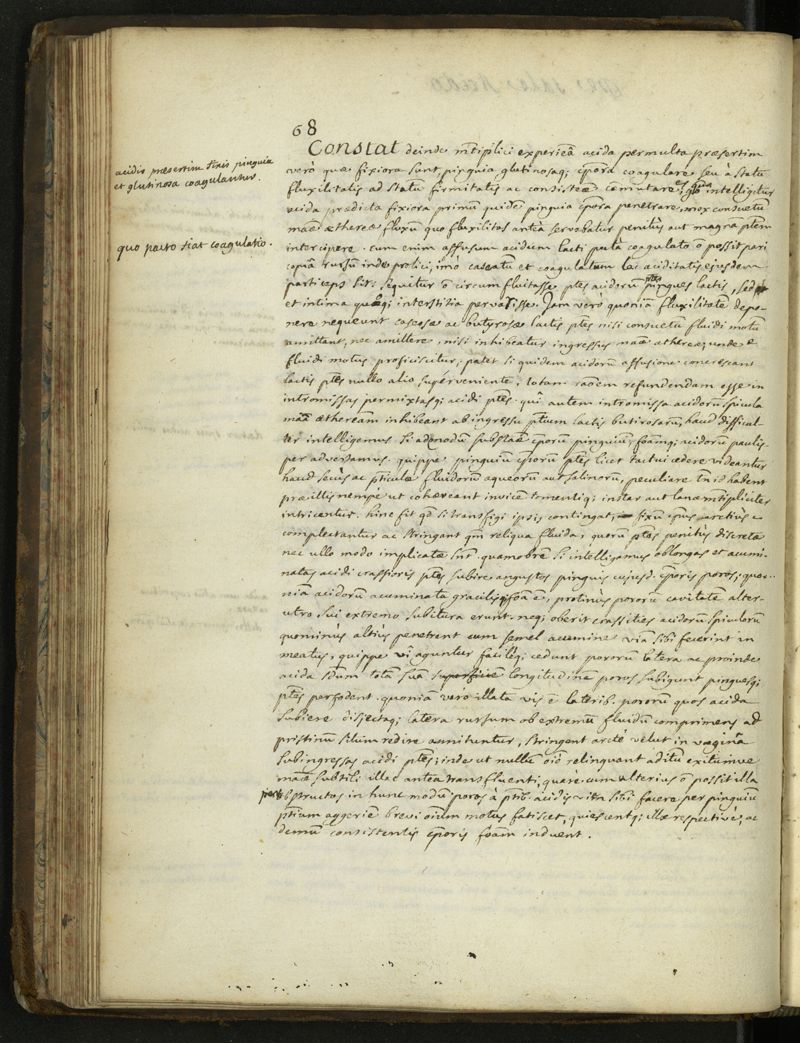 68
acidis præsertim finis pinguia
et glutinosa coagulantur.
quo pacto fiat coagulatio.
Constat deinde mtiplici experiẽa acida permulta præsertim
verò quæ fixiora sunt pinguia, glutinosaq; cp̃ora coagulare seu à statu
fluxilitatis ad statũ firmitatis ac consistẽæ comutare, intelligitur
acida prædicta fixiora primũ quidẽ pinguia cp̃ora penetrare, mox consuetũ
mãæ æthereæ fluxũ quo fluxilitas anteà servabatur penitùs aut magnã ptẽm
intercipere. cum enim affusum acidum lacti putà coagulato õ possit pari
copiâ rursũ inde prolici, imò caseatũ et coagulatum lac aciditatis ejusdem
particeps sit: sequitur õ circum fluitasse ptes acidorũ pingues lactis, sed
et intima quæq; interstitia pervasisse. Jam verò quoniã fluxilitatẽ depo-
nere nequeunt caseosæ ac butyrosæ lactis ptes nisi consuetũ fluidi motũ
amittant, nec amittere, nisi inhibeatur ingressus mãæ æthereæ; unde
fluidi motus proficiscitur; patet si quidem acidorũ affusione concrescant
lactis ptes nullo alio supérveniente, totam raõem refundendam esse in
intromissas permixtasq; acidi ptes. quî autem intromissa acidorũ spicula
mãã ætheream inhibeant ab ingressu ptium lactis butirosarũ, haud difficul-
ter intelligemus si ad substãæ cp̃orum pinguiũ, foãmq; acidorũ paulis-
per advertamus. quippe pinguiũ cp̃orũ ptes licet tactui cedere videantur
haud secùs ac pticulæ fluidorũ aqueorũ aut salinorũ, peculiare tñ id habent
præ illis nempe ut cohæreant invicẽ tomentiq; instar aut lanæ mtipliciter
intricentur. hinc fit qd si transfigi ipsis contingat, fixũ cp̃us arctiùs
complectantur ac stringant qm reliqua fluida, quorũ ptes penitùs discretæ
nec ullo modo implicatæ sint. quamobrẽ si intelligamus oblongas et acumi-
natas acidi crassioris ptes subire angustos pinguis cujusd. cp̃oris poros; quo-
niã acidorũ acuminata gracilisq; foã ẽ, protinùs pororũ cavitatẽ alter-
utro sui extremo subitura erunt. neq; oberit crassities acidorũ spiculorũ
quominùs altiùs penetrent cum semel acumine viã sibi fecerint in
meatus, quippe vi aguntur facilèq; cedunt pororũ latera ac proinde
acida sdum totã suã superficiẽ longitudinẽ poros subigunt pinguesq;
ptes perfodent. quoniã verò illata vis ẽ laterib. pororũ quos acida
subiere disjectaq; latera rursum ob extremũ fluidũ comprimens ad
pristinũ situm redire annituntur, stringent arctè velut in vaginã
subingressas acidi ptes; inde ut nullũ oĩẽ relinquant aditũ exitumve
mãæ subtili illac anteà transfluenti, quare cum alterius õ possit illa
obstructos in hunc modũ poros à ptib. acidis viã sibi facere per pinguiũ
ptium aggeriẽ brevi oium motus fatiscet, quiescentq; illæ respectivè, ac
demũ consistentis cp̃oris foãm induent.